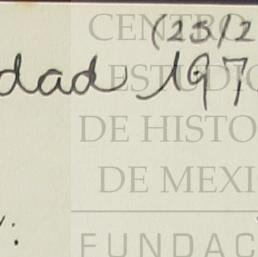 (23/2
dad 197
CENTRO
ESTUDIO
DE HISTO
DE MEXI
:
FUNDAC